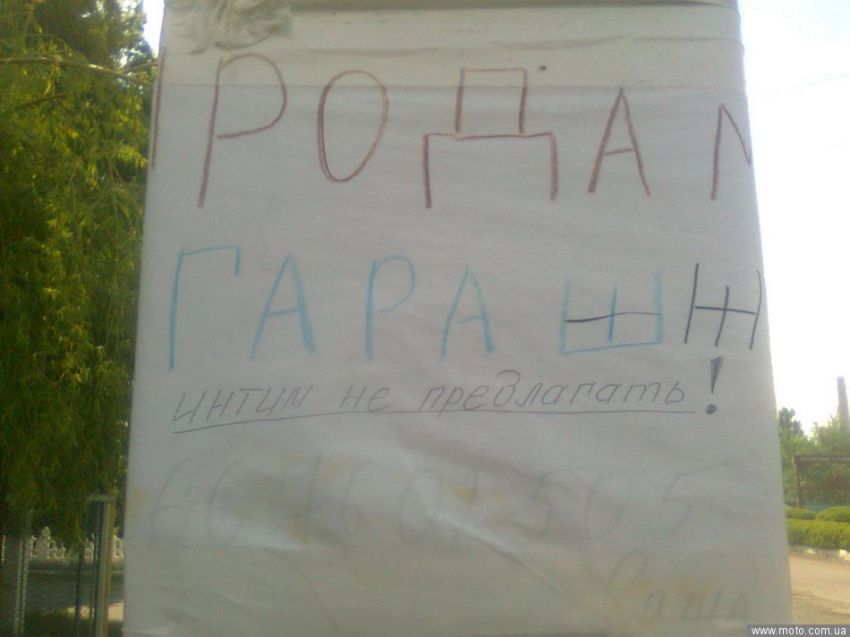 ПРОДАМ
ГАРАШЖ
интим не предлагать!
Саша
www.moto.com.ua